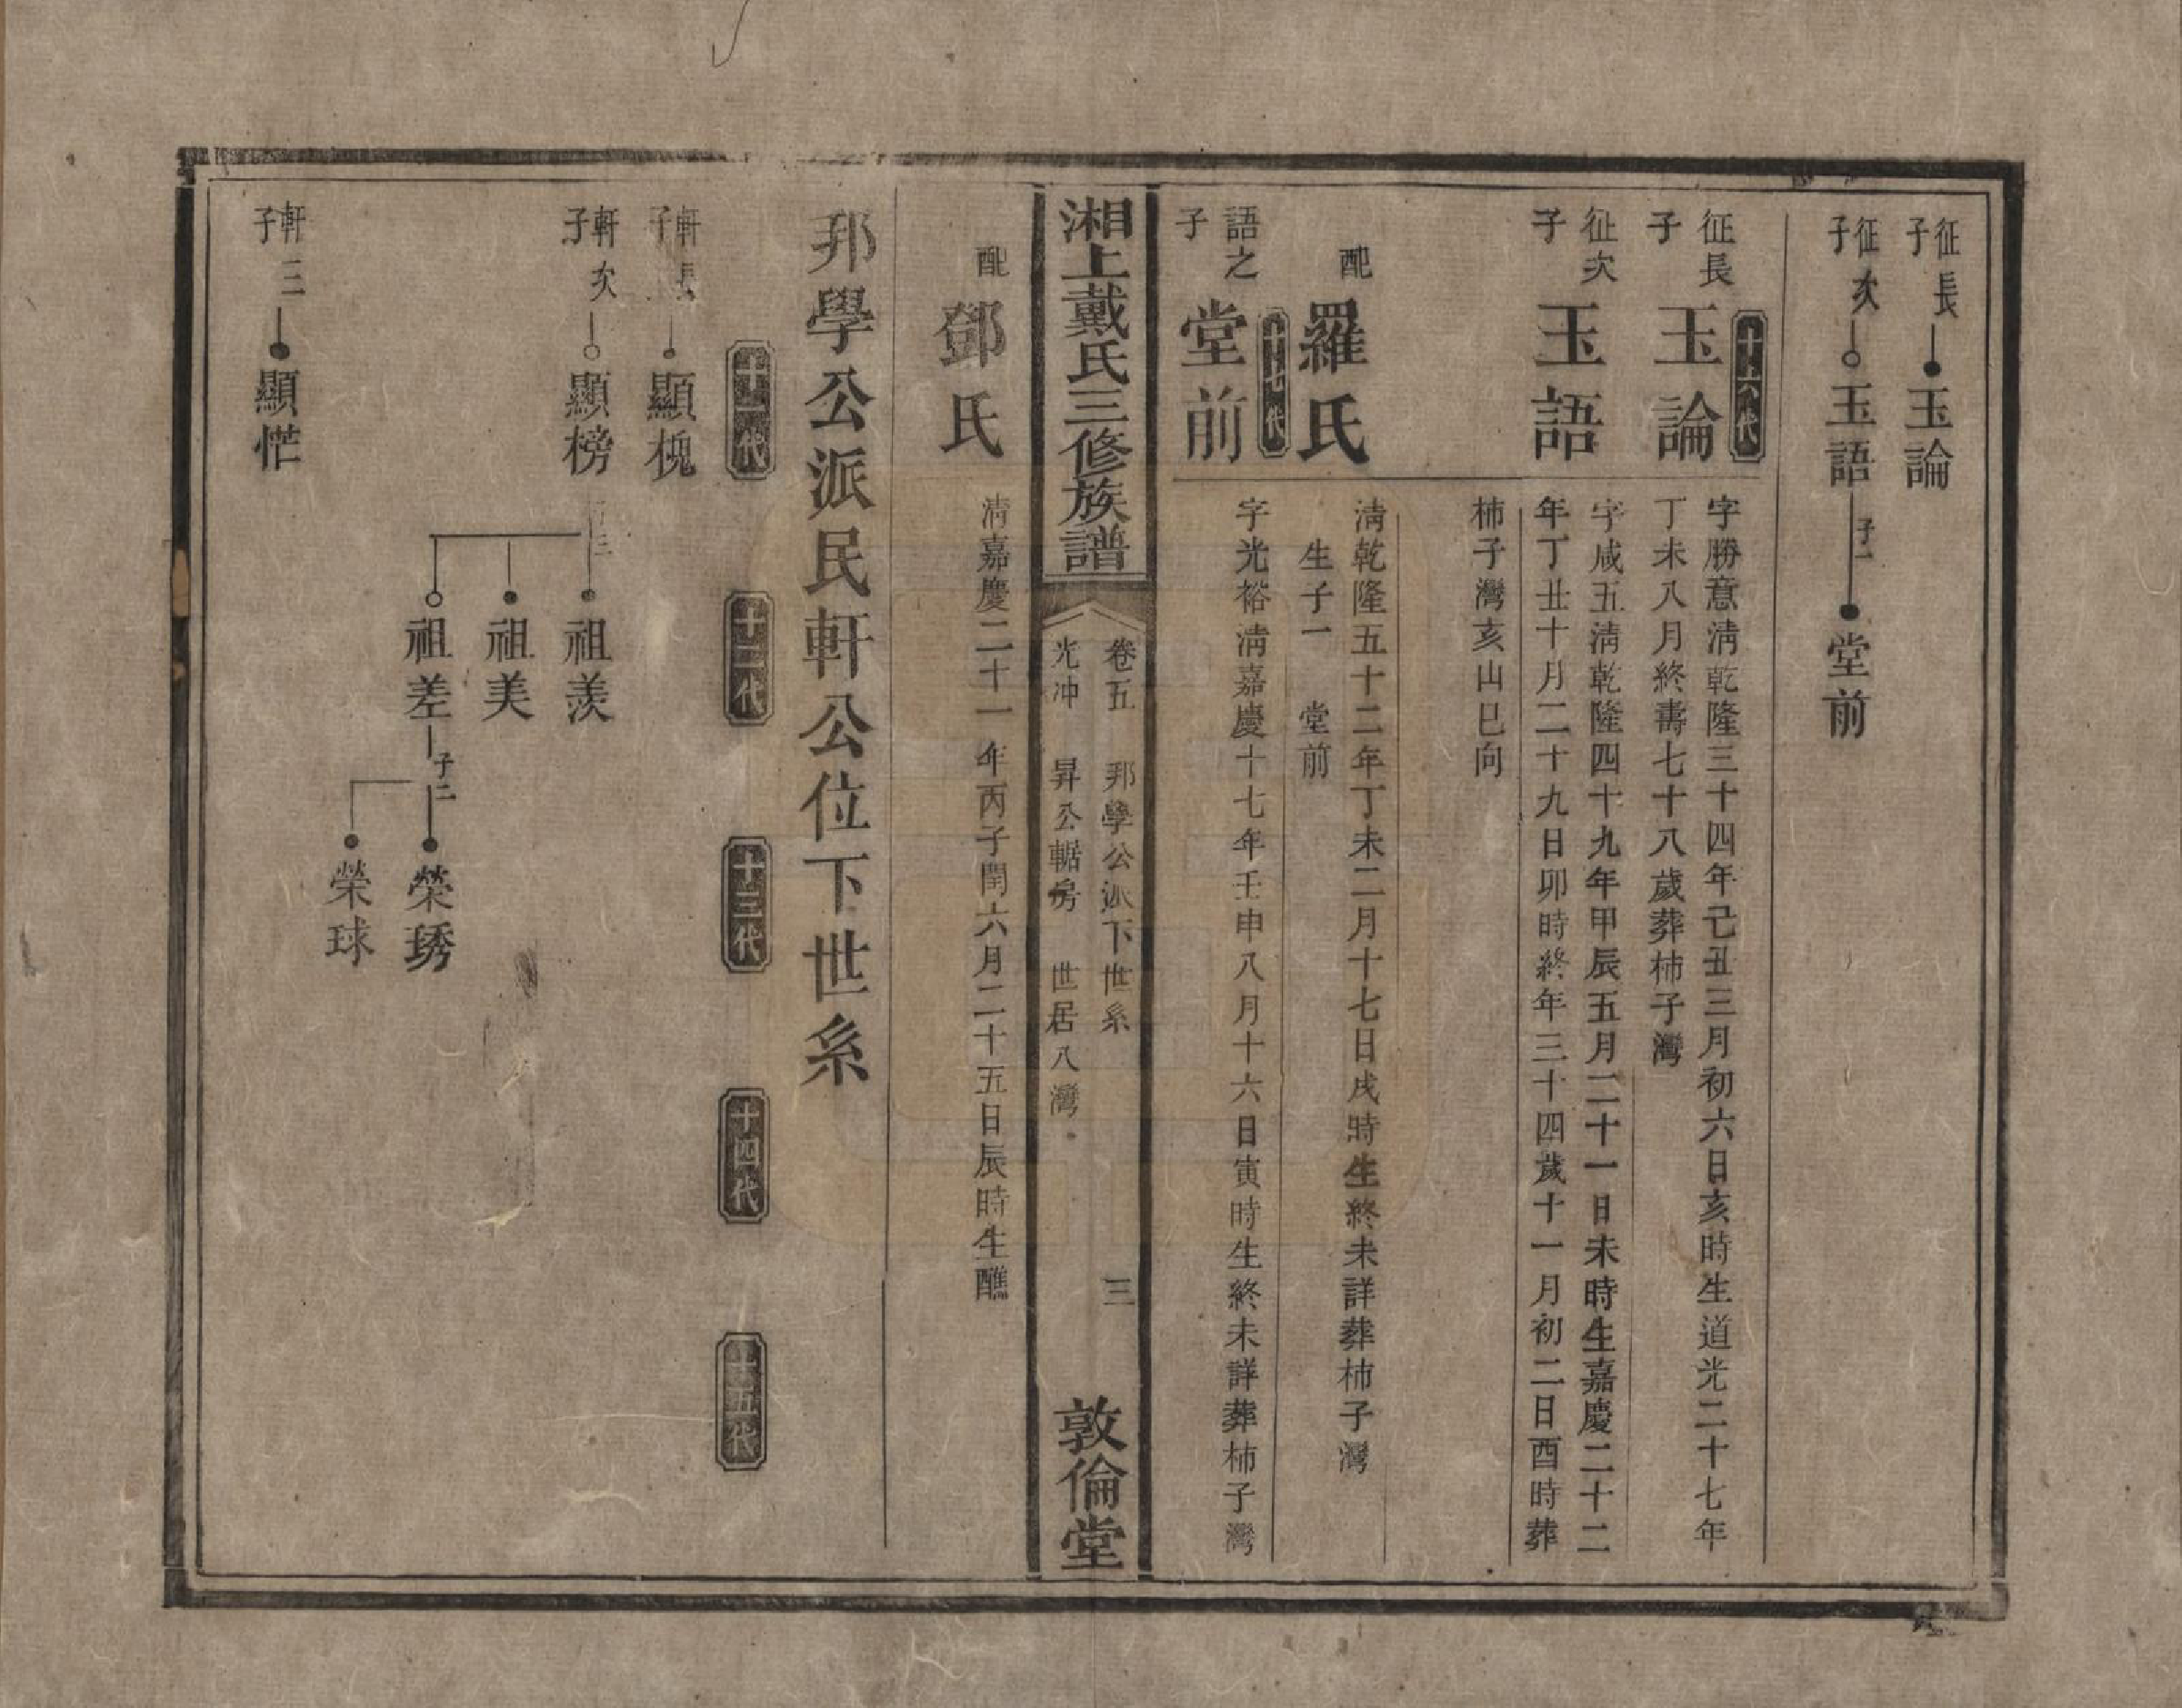 征長子 玉論
征次子 玉語 子一 堂前
十六代
征長子 玉論 字勝意淸乾隆三十四年己丑三月初六日亥時生道光二十七年
丁未八月終壽七十八歲葬柿子灣
征次子 玉語 字咸五淸乾隆四十九年甲辰五月二十一日未時生嘉慶二十二
年丁丑十月二十九日卯時終年三十四歲十一月初二日酉時葬
柿子灣亥山巳向
配 羅氏 淸乾隆五十二年丁未二月十七日戌時生終未詳葬柿子灣
生子一 堂前
十七代
語之子 堂前 字光裕淸嘉慶十七年壬申八月十六日寅時生終未詳葬柿子灣
湘上戴氏三修族譜
卷五 邦學公派下世系 三
光冲 昇公輼房 世居八灣
敦倫堂
配 鄧氏 淸嘉慶二十一年丙子閏六月二十五日辰時生醮
邦學公派民軒公位下世系
十一代 十二代 十三代 十四代 十五代
軒長子 顯槐
軒次子 顯榜 子三 祖羨
祖美
祖差 子二 榮琇
榮球
軒三子 顯恾